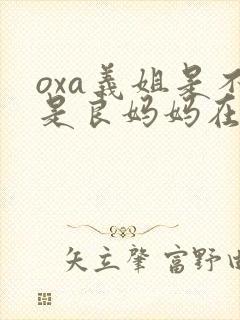 oxa義姐是不
是良妈妈在
矢立肇 富野由